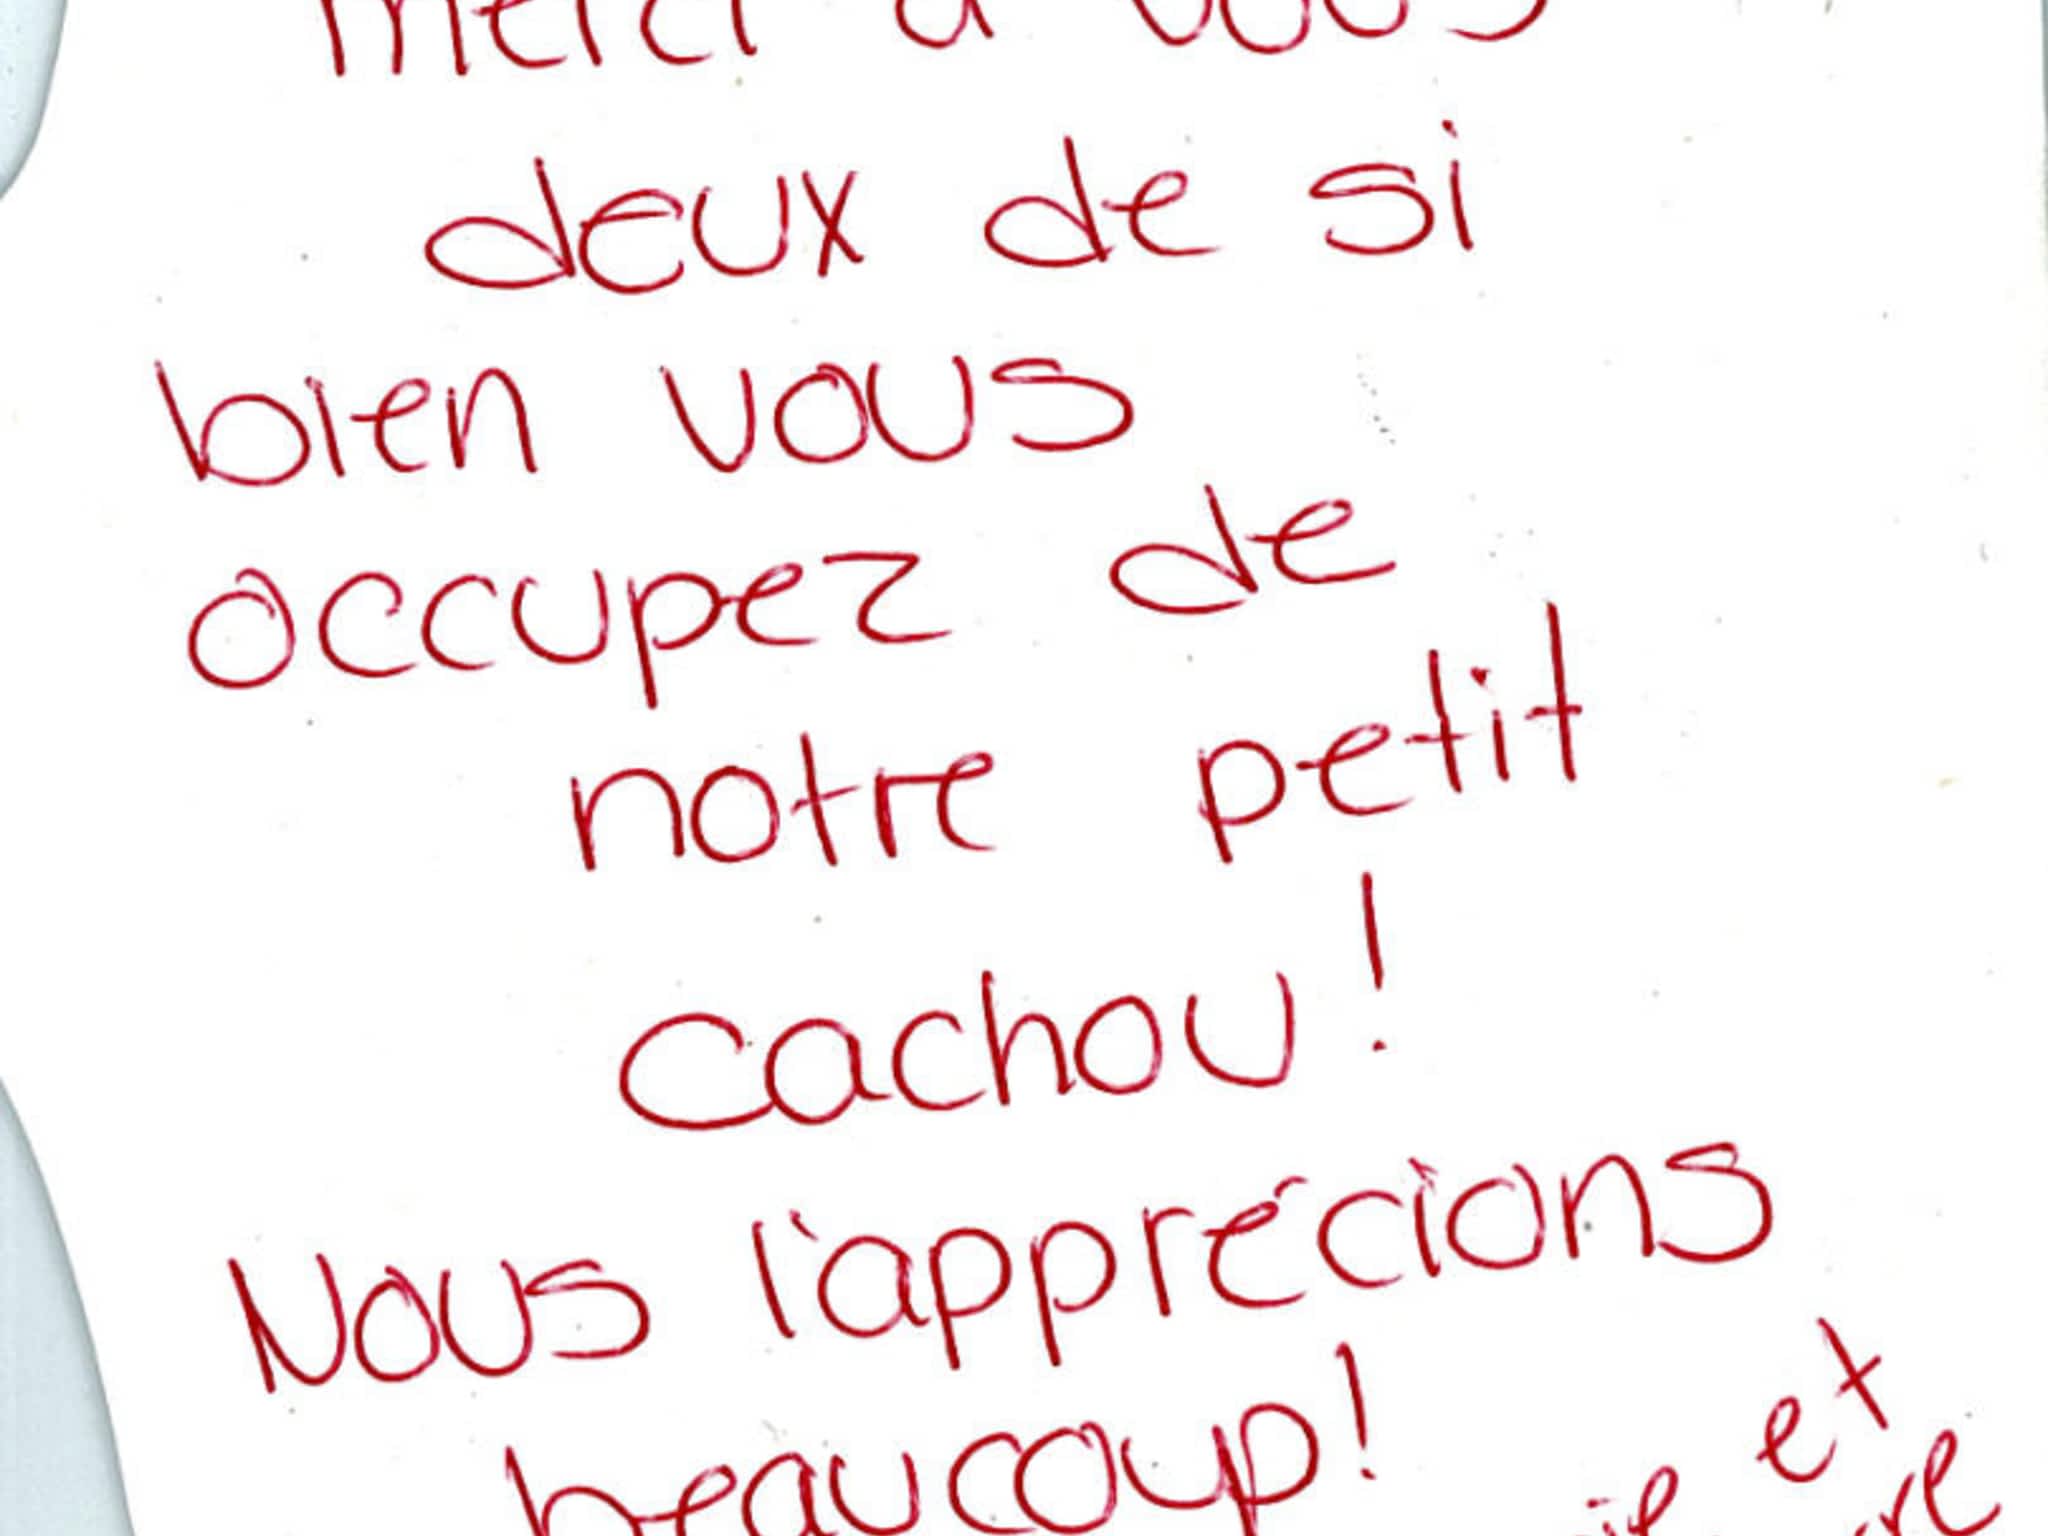 merci à vous
deux de si
bien vous
occupez de
notre petit
cachou!
Nous l'apprécions
beaucoup!
et